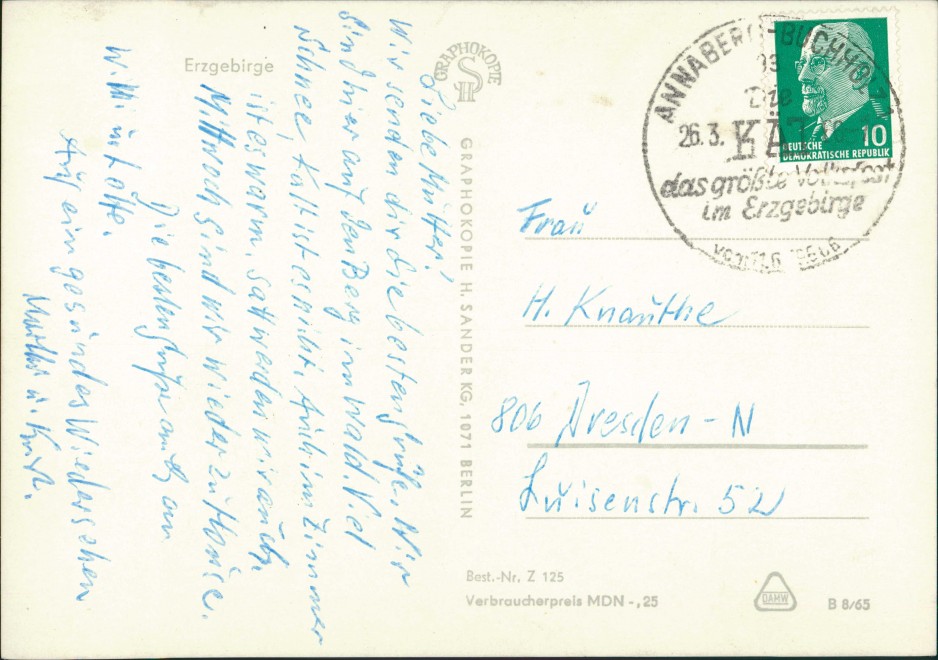 Erzgebirge
Liebe Mutter!
Wir senden dir die besten Grüße. Wir
sind hier auf den Berg im Wald. Viel
Schnee, kalt ist es nicht. Auch im Zimmer
ist es warm. Satt werden wir auch.
Mittwoch sind wir wieder zu Hause.
Die besten Grüße auch an
Willi u. Lotte.
Auf ein gesundes Wiedersehen
u. Kurt.
GRAPHOKOPIE
H S
GRAPHOKOPIE H. SANDER KG, 1071 BERLIN
ANNABERG-BUCHHOLZ
Die
26.3.
KÄT
das größte Volksfest
im Erzgebirge
10
DEUTSCHE
DEMOKRATISCHE REPUBLIK
Frau
H. Knauthe
806 Dresden-N
Luisenstr. 52
Best.-Nr. Z 125
Verbraucherpreis MDN -,25
DAMW
B 8/65